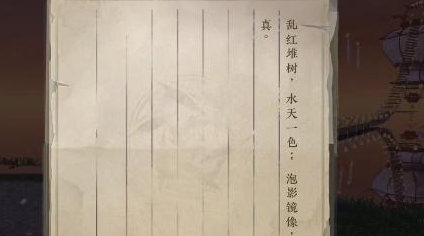 乱红堆树，水天一色；泡影镜像，
真。